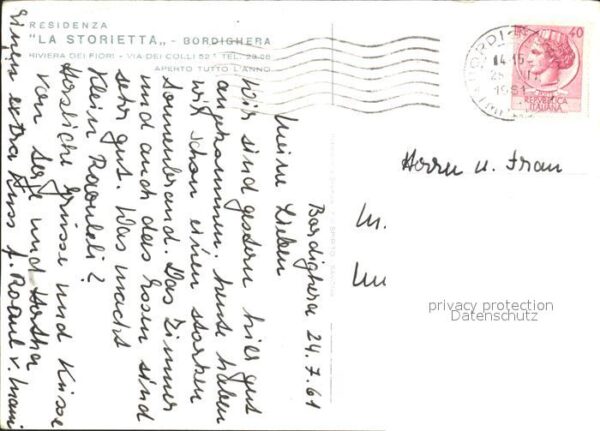 RESIDENZA
"LA STORIETTA„ - BORDIGHERA
RIVIERA DEI FIORI - VIA DEI COLLI 52 A TEL. 28.08
APERTO TUTTO L'ANNO
BORDIGHERA
14-15
1961
40
REPVBBLICA
ITALIANA
Bordighera 24.7.61
Meine Lieben
Wir sind gestern hier gut
angekommen. heute haben
wir schon einen starken
Sonnenbrand. Das Zimmer
und auch das Essen sind
sehr gut. Was macht
klein Raouleli?
Herzliche Grüsse und Küsse
von Serge und Hertha
einen extra Kuss f. Raoul v. Mami
Herrn u. Frau
M.
privacy protection
Datenschutz